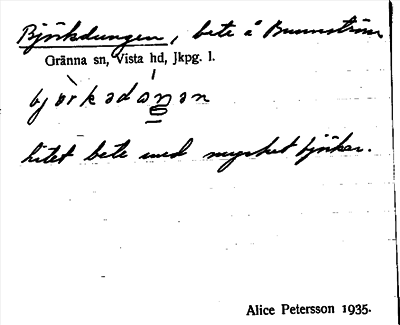 Björkdungen, bete å Bunnström
Gränna sn, Vista hd, Jkpg. l.
björkədaŋən
Litet bete med mycket björkar.
Alice Petersson 1935.